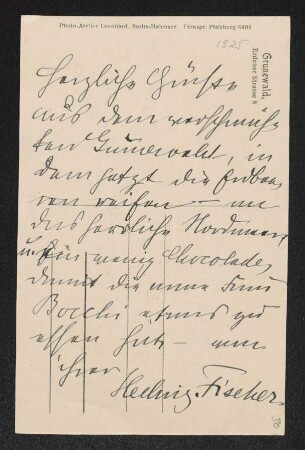 Photo-Atelier Leonhard, Berlin-Halensee Fernspr. Pfalzburg 6494
1925
Grunewald,
Erdener Strasse 8
Herzliche Grüsse
aus dem verschmäh-
ten Grunewald, in
dem jetzt die Erdbee-
ren reifen – an
das herrliche Nordmeer
u. ein wenig Chocolade,
damit die arme Frau
etwas zu
essen hat – von
ihrer
Hedwig Fischer